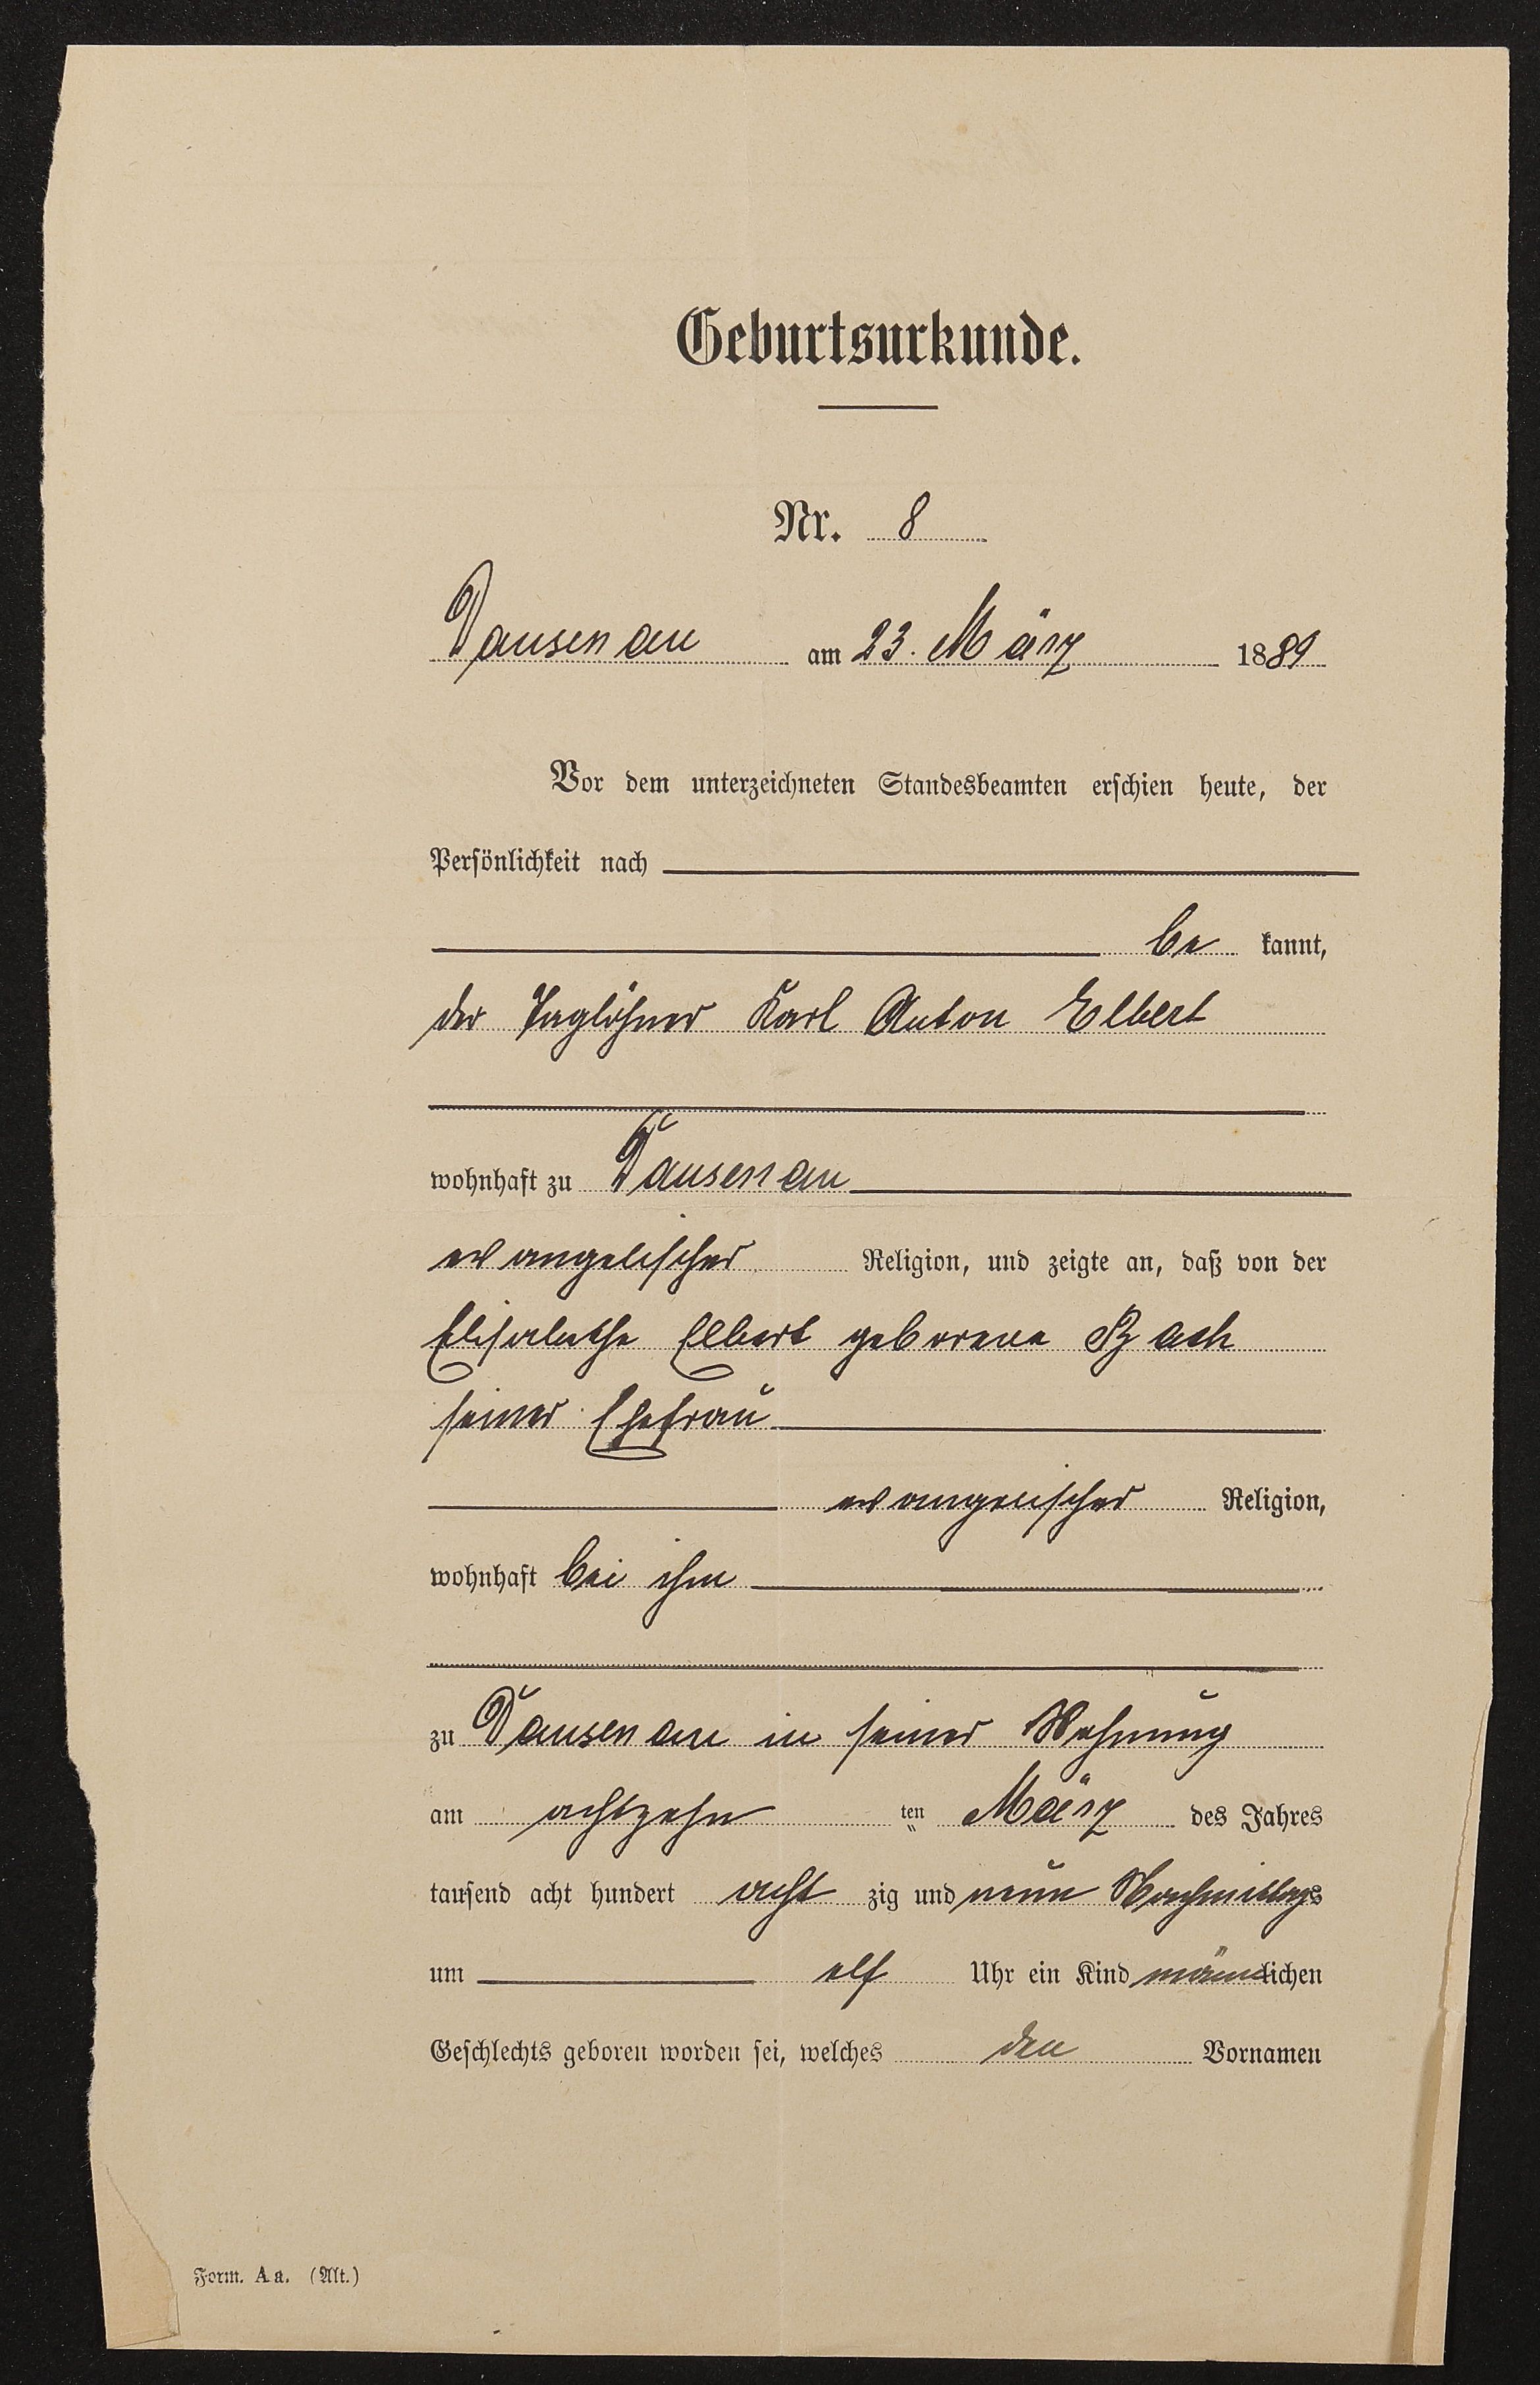 Geburtsurkunde.
Nr. 8
Dausenau am 23. März 1889
Vor dem unterzeichneten Standesbeamten erschien heute, der
Persönlichkeit nach
be kannt,
der Taglöhner Karl Anton Elbert
wohnhaft zu Dausenau
evangelischer Religion, und zeigte an, daß von der
Elisabethe Elbert geborene Bach
seiner Ehefrau
evangelischer Religion,
wohnhaft bei ihm
zu Dausenau in seiner Wohnung
am achtzehn ten März des Jahres
tausend acht hundert acht zig und neun Nachmittags
um elf Uhr ein Kind männlichen
Geschlechts geboren worden sei, welches den Vornamen
Form. A a. (Alt.)